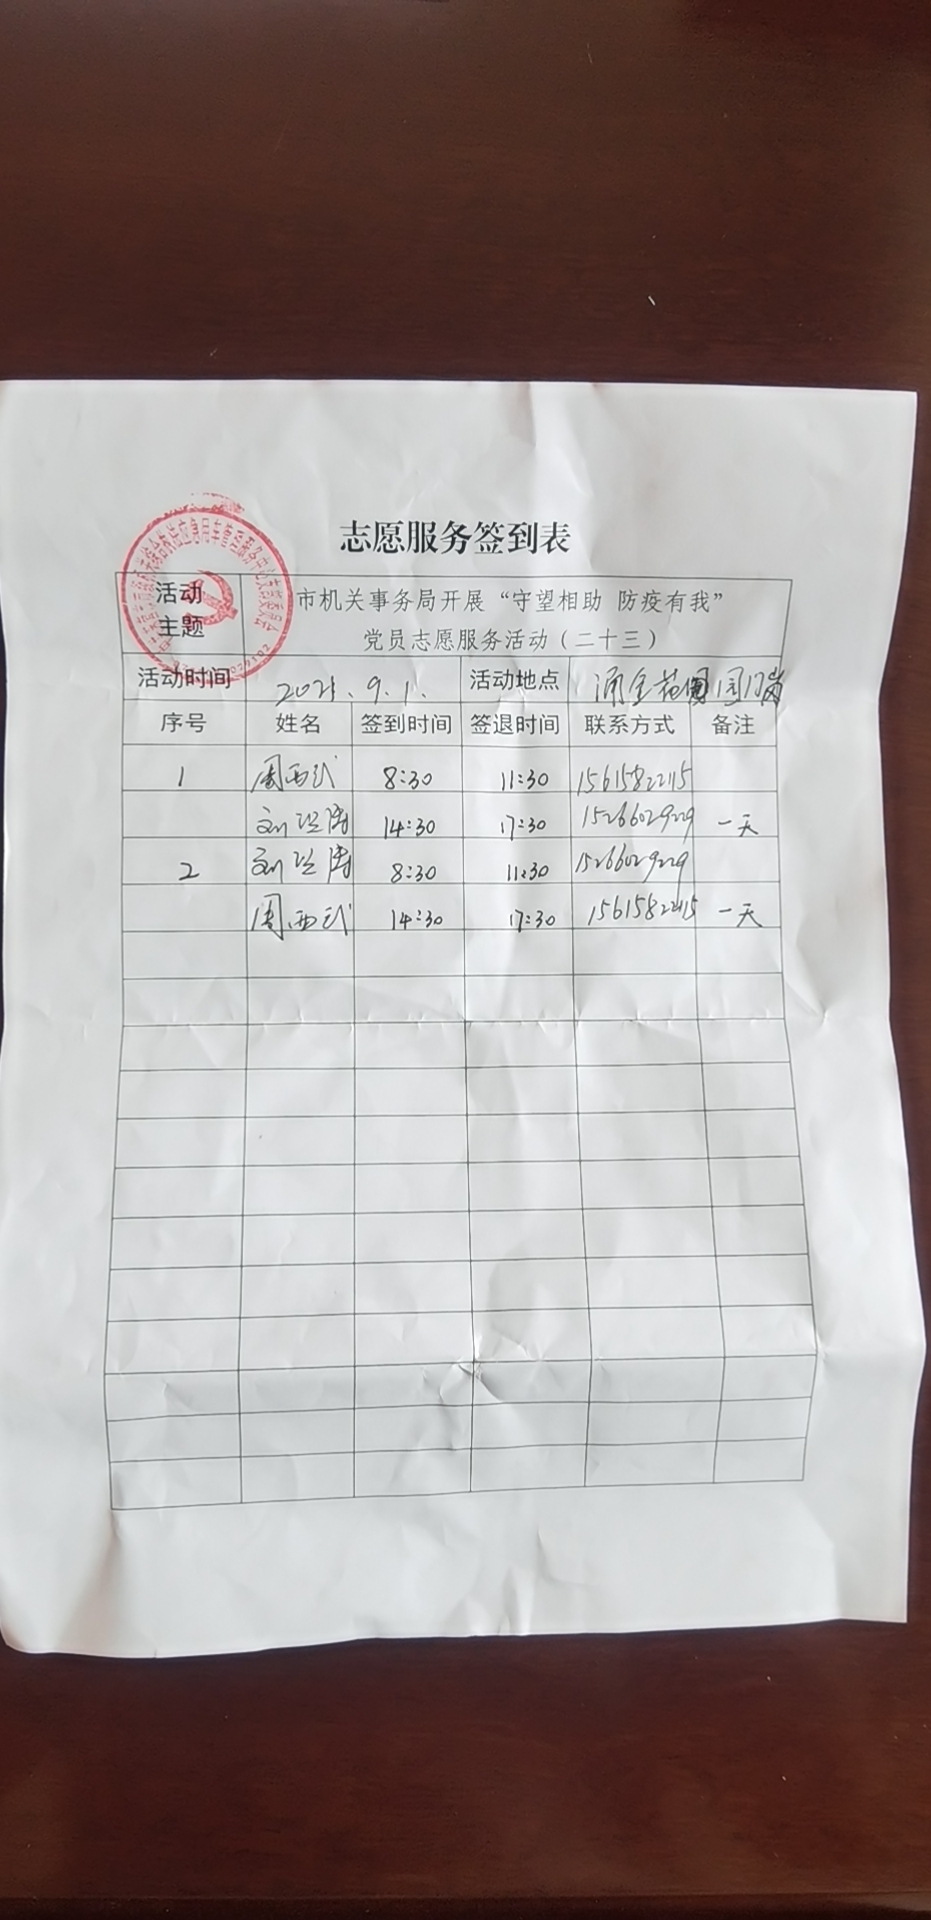 志愿服务签到表
活动主题 市机关事务局开展“守望相助 防疫有我”
党员志愿服务活动（二十三）
活动时间 2021.9.1. 活动地点 花园门岗
序号 姓名 签到时间 签退时间 联系方式 备注
1 周西武 8:30 11:30 15615822115
刘 涛 14:30 17:30 15266029229 一天
2 刘 涛 8:30 11:30 15266029229
周西武 14:30 17:30 15615822115 一天